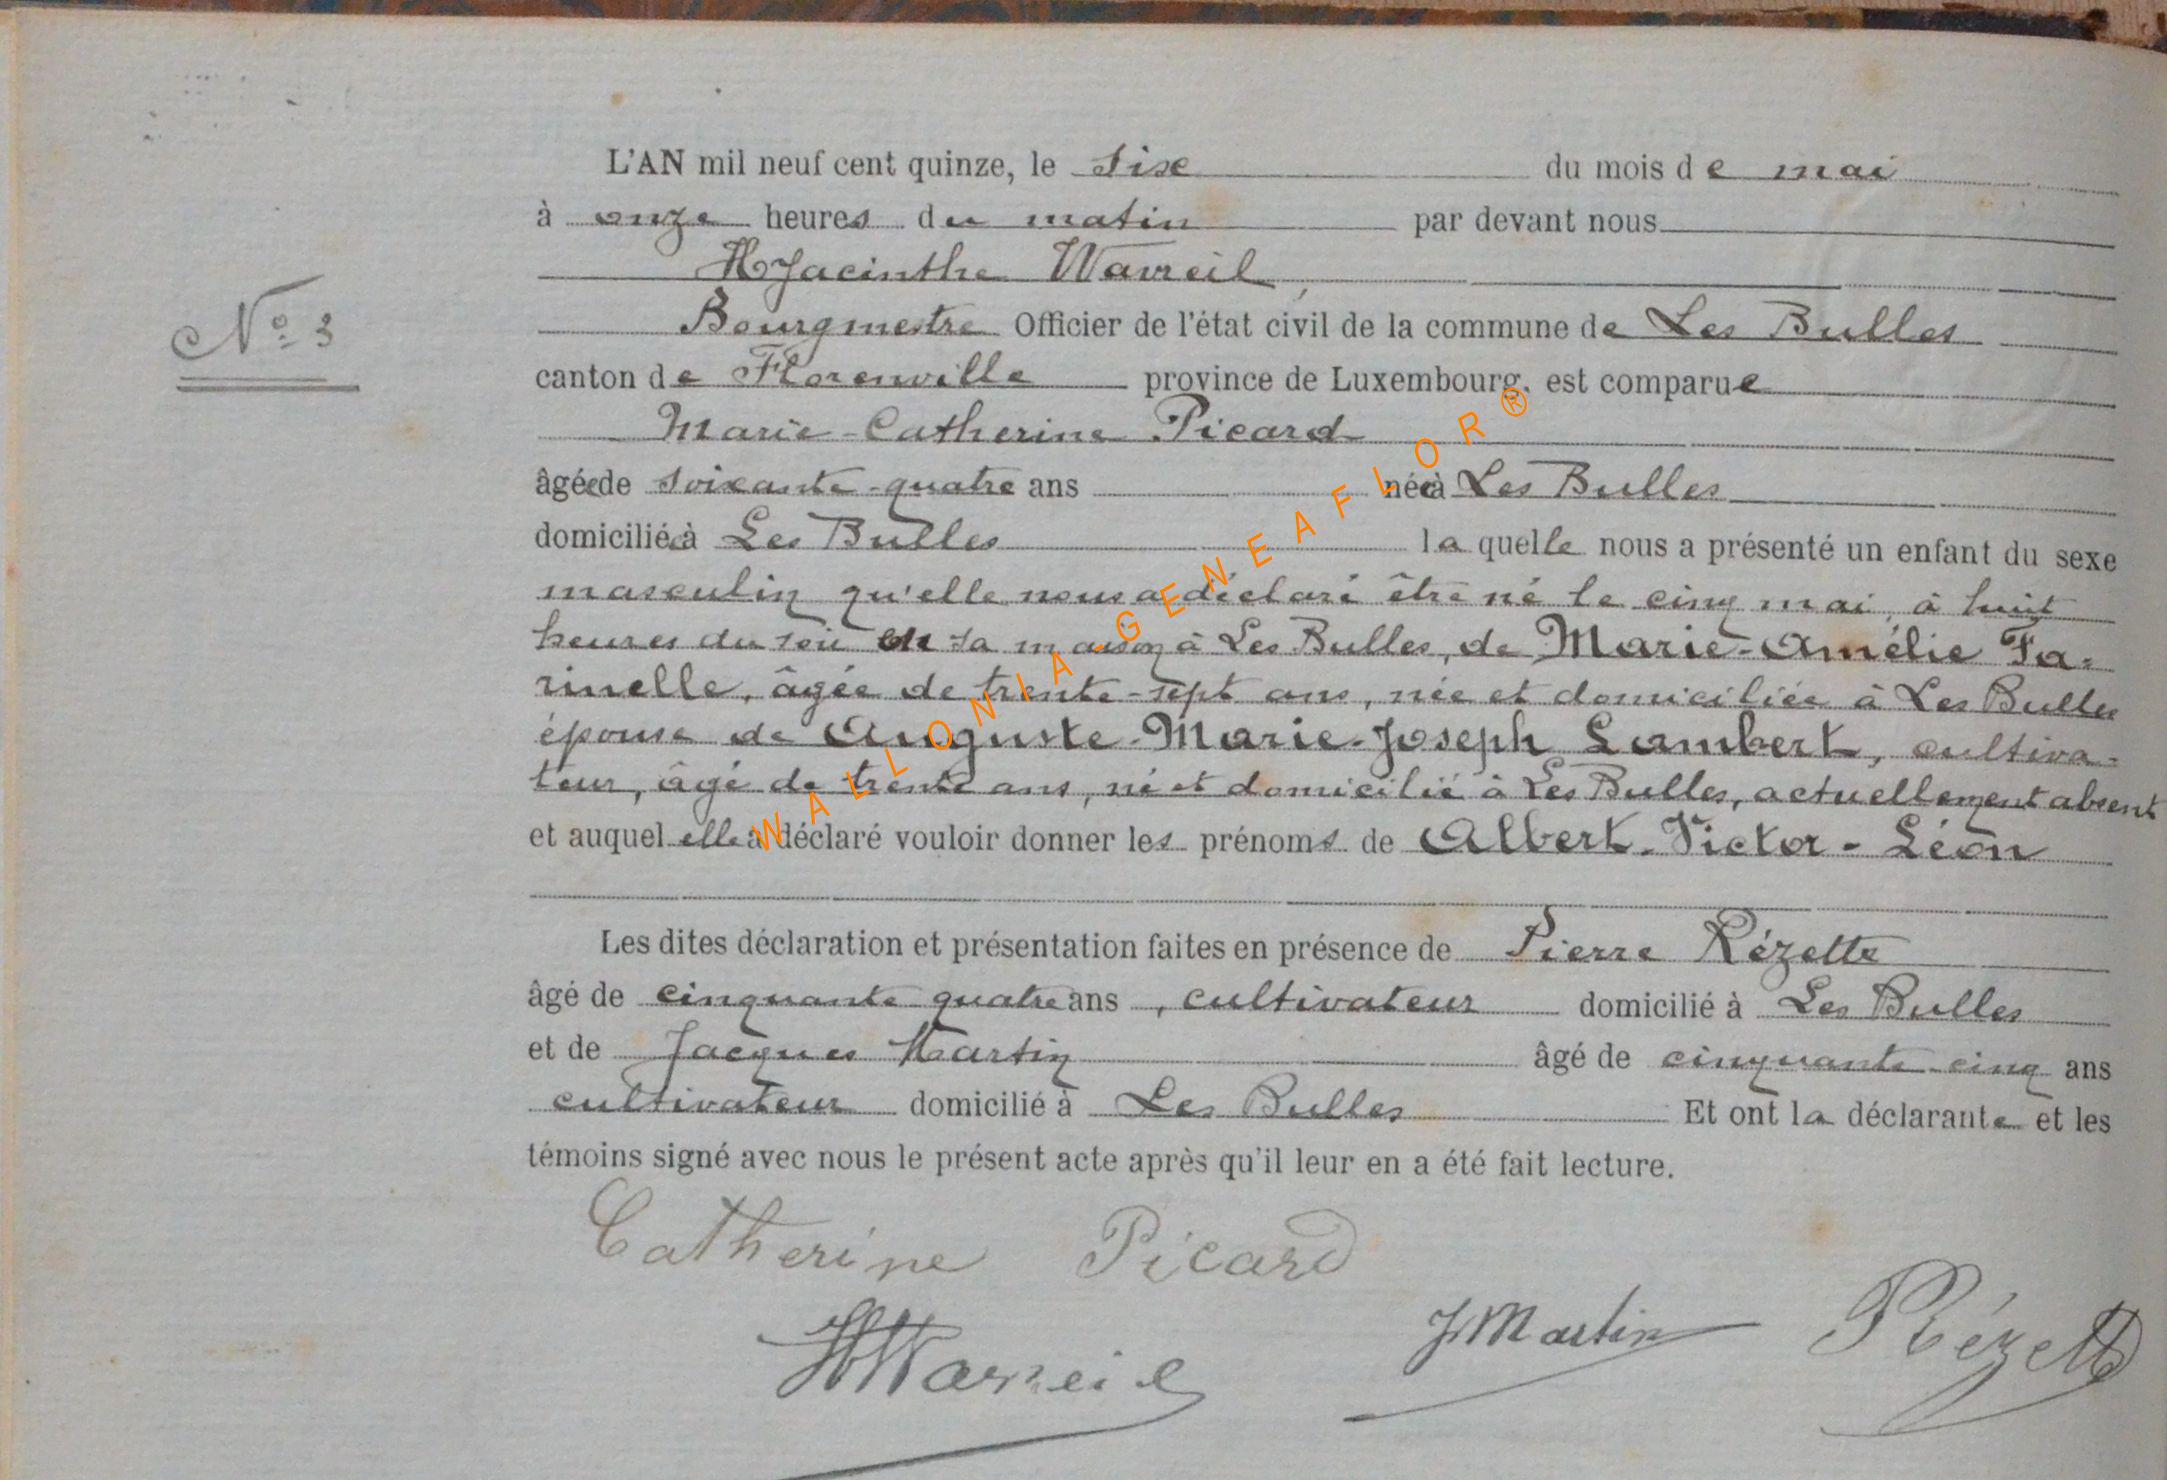 L'AN mil neuf cent quinze, le six du mois de mai
à onze heures du matin par devant nous
Hyacinthe Wavreil,
N° 3
Bourgmestre Officier de l'état civil de la commune de Les Bulles
canton de Florenville province de Luxembourg, est comparue
Marie-Catherine Picard
âgée de soixante-quatre ans née à Les Bulles
domiciliée à Les Bulles laquelle nous a présenté un enfant du sexe
masculin qu'elle nous a déclaré être né le cinq mai, à huit
heures du soir en sa maison à Les Bulles, de Marie-Amélie Fa-
rinelle, âgée de trente-sept ans, née et domiciliée à Les Bulles
épouse de Auguste-Marie-Joseph Lambert, cultiva-
teur, âgé de trente ans, né et domicilié à Les Bulles, actuellement absent
et auquel elle a déclaré vouloir donner les prénoms de Albert-Victor-Léon
Les dites déclaration et présentation faites en présence de Pierre Rézette
âgé de cinquante quatre ans, cultivateur domicilié à Les Bulles
et de Jacques Martin âgé de cinquante-cinq ans
cultivateur domicilié à Les Bulles Et ont la déclarante et les
témoins signé avec nous le présent acte après qu'il leur en a été fait lecture.
Catherine Picard
HWavreil
J Martin
P Rézette
WALLONIA-GENEAFLOR®